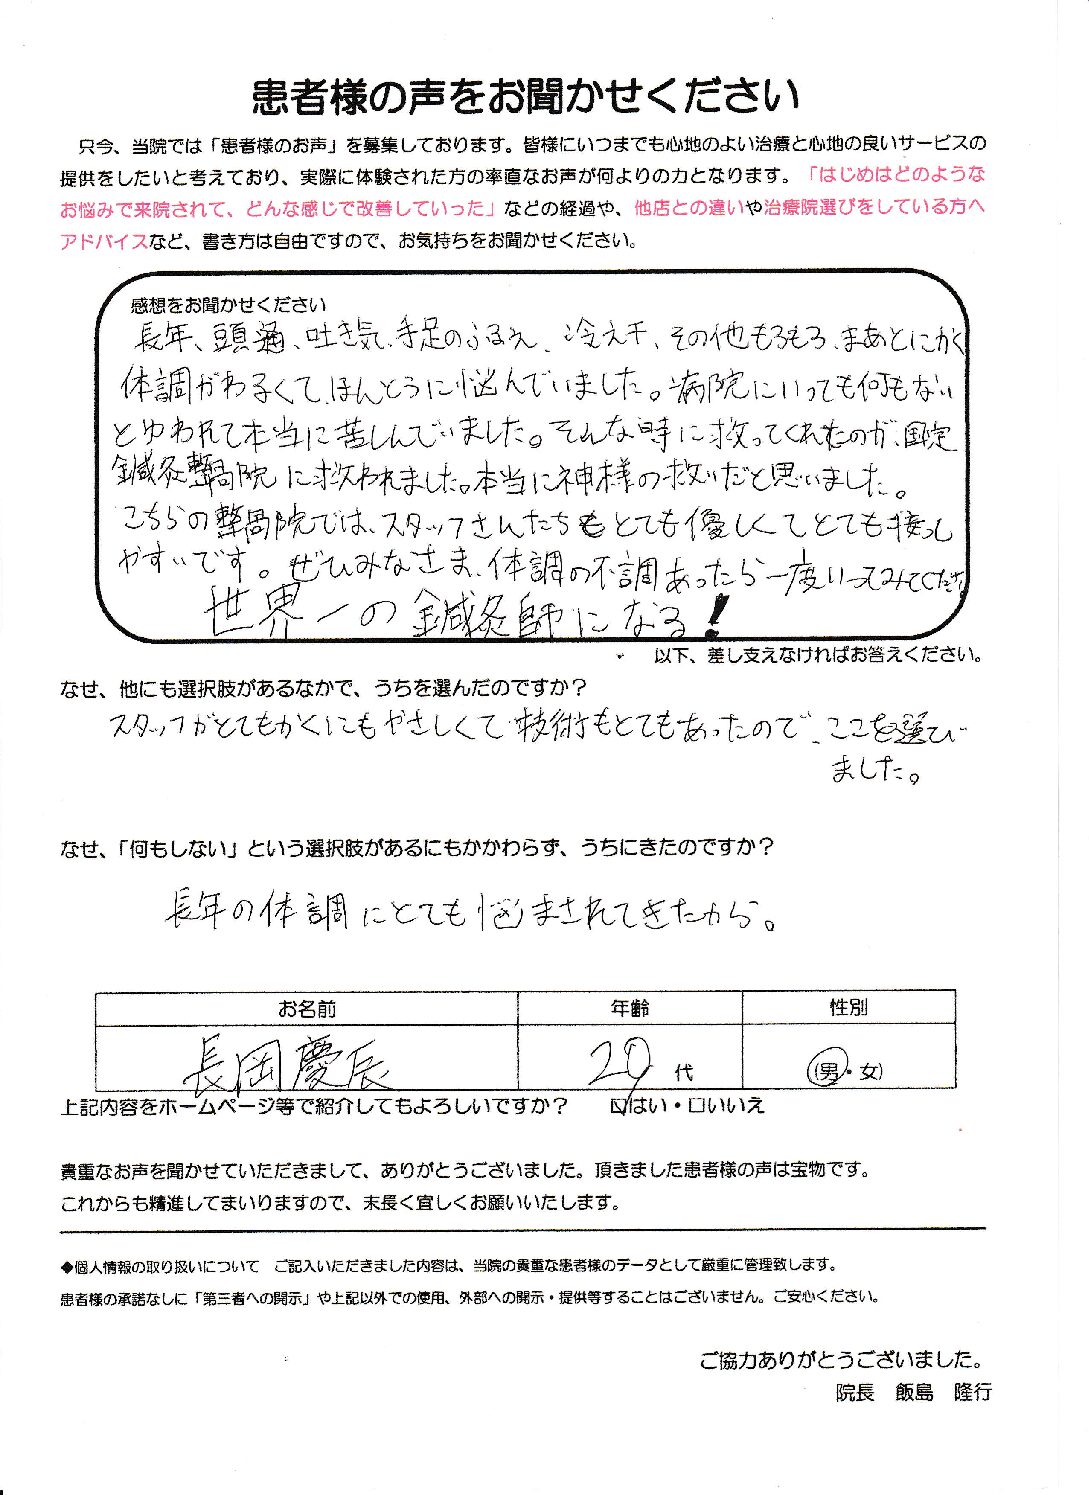 患者様の声をお聞かせください
只今、当院では「患者様のお声」を募集しております。皆様にいつまでも心地のよい治療と心地の良いサービスの
提供をしたいと考えており、実際に体験された方の率直なお声が何よりの力となります。「はじめはどのような
お悩みで来院されて、どんな感じで改善していった」などの経過や、他店との違いや治療院選びをしている方へ
アドバイスなど、書き方は自由ですので、お気持ちをお聞かせください。
感想をお聞かせください
長年、頭痛、吐き気、手足のふるえ、冷え、その他もろもろ、まあとにかく
体調がわるくて、ほんとうに悩んでいました。病院にいっても何もない
とゆわれて本当に苦しんでいました。そんな時に救ってくれたのが、国定
鍼灸整骨院に救われました。本当に神様の救いだと思いました。
こちらの整骨院では、スタッフさんたちもとても優しくてとても接っし
やすいです。ぜひみなさま、体調の不調あったら一度いってみてください
世界一の鍼灸師になる!
以下、差し支えなければお答えください。
なぜ、他にも選択肢があるなかで、うちを選んだのですか?
スタッフがとてもかくにもやさしくて技術もとてもあったので、ここを選び
ました。
なぜ、「何もしない」という選択肢があるにもかかわらず、うちにきたのですか?
長年の体調にとても悩まされてきたから。
お名前 年齢 性別
長岡慶辰 20代 (男・女)
上記内容をホームページ等で紹介してもよろしいですか? ☑はい・□いいえ
貴重なお声を聞かせていただきまして、ありがとうございました。頂きました患者様の声は宝物です。
これからも精進してまいりますので、末長く宜しくお願いいたします。
◆個人情報の取り扱いについて ご記入いただきました内容は、当院の貴重な患者様のデータとして厳重に管理致します。
患者様の承諾なしに「第三者への開示」や上記以外での使用、外部への開示・提供等することはございません。ご安心ください。
ご協力ありがとうございました。
院長 飯島 隆行